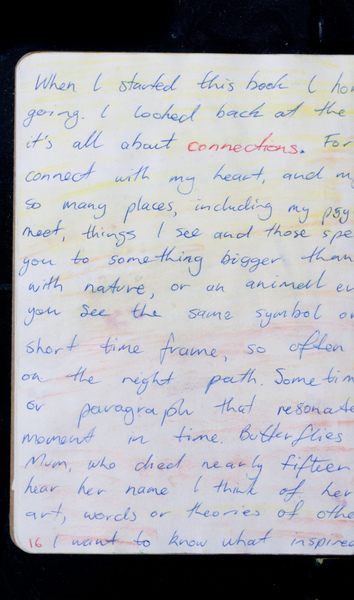 When I started this book I
going. I looked back at the
it's all about connections. For
connect with my heart, and
so many places, including my
meet, things I see and those
you to something bigger than
with nature, or an animal
you see the same symbol or
short time frame, so often
on the right path.
or paragraph that
moment in time. Butterflies
Mum, who died nearly fifteen
hear her name I think of her
art, words or theories of
16 I want to know what